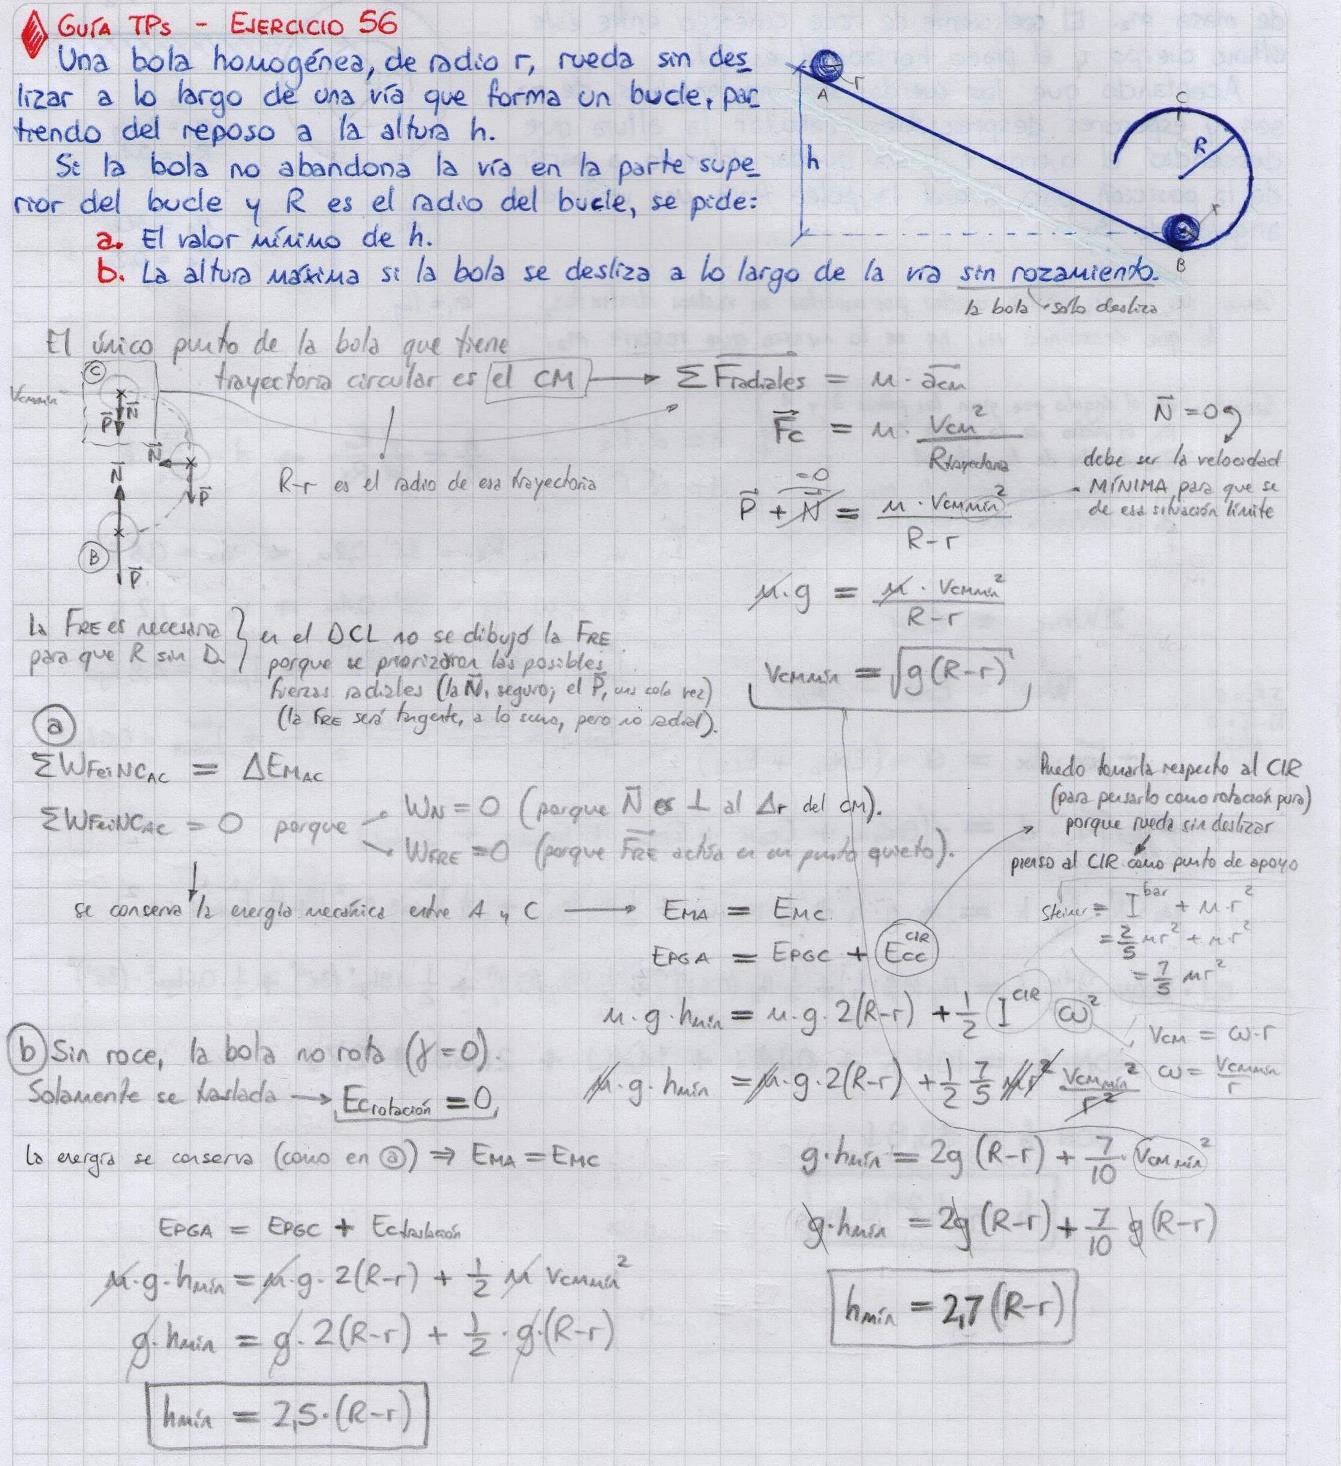 GUÍA TPs - EJERCICIO 56
Una bola homogénea, de radio r, rueda sin des
lizar a lo largo de una vía que forma un bucle, par
tiendo del reposo a la altura h.
Si la bola no abandona la vía en la parte supe
rior del bucle y R es el radio del bucle, se pide:
a. El valor mínimo de h.
b. La altura máxima si la bola se desliza a lo largo de la vía sin rozamiento.
la bola solo desliza
A
r
h
C
R
r
B
El único punto de la bola que tiene
trayectoria circular es el CM → ΣFradiales = m · acm
R-r es el radio de esa trayectoria
C
VCMmín
P N
N
P
N
B
P
Fc = m · VCM² / Rtrayectoria
N = 0
debe ser la velocidad
MÍNIMA para que se
de esa situación límite
P + N = m · VCMmín² / R-r
=0
m · g = m · VCMmín² / R-r
VCMmín = √g(R-r)
la FRE es necesaria
para que R sin D.
en el DCL no se dibujó la FRE
porque se priorizaron las posibles
fuerzas radiales (la N, seguro; el P, una sola vez)
(la FRE será tangente, a lo sumo, pero no radial).
a
ΣWFeiNCAC = ΔEMAC
ΣWFeiNCAC = 0 porque
WN = 0 (porque N es ⊥ al Δr del CM).
WFRE = 0 (porque FRE actúa en un punto quieto).
se conserva la energía mecánica entre A y C → EMA = EMC
EPGA = EPGC + ECC CIR
Puedo tomarla respecto al CIR
(para pensarlo como rotación pura)
porque rueda sin deslizar
pienso al CIR como punto de apoyo
Steiner = I bar + m·r²
= 2/5 mr² + m·r²
= 7/5 mr²
m · g · hmín = m · g · 2(R-r) + 1/2 I CIR ω²
VCM = ω·r
ω = VCMmín / r
m · g · hmín = m · g · 2(R-r) + 1/2 7/5 mr² VCMmín² / r²
g · hmín = 2g (R-r) + 7/10 · VCMmín²
g · hmín = 2g (R-r) + 7/10 g (R-r)
hmín = 2,7 (R-r)
b Sin roce, la bola no rota (γ = 0).
Solamente se traslada → Ecrotación = 0
la energía se conserva (como en a) ⇒ EMA = EMC
EPGA = EPGC + Ectraslación
m · g · hmín = m · g · 2(R-r) + 1/2 m VCMmín²
g · hmín = g · 2(R-r) + 1/2 · g · (R-r)
hmín = 2,5 · (R-r)